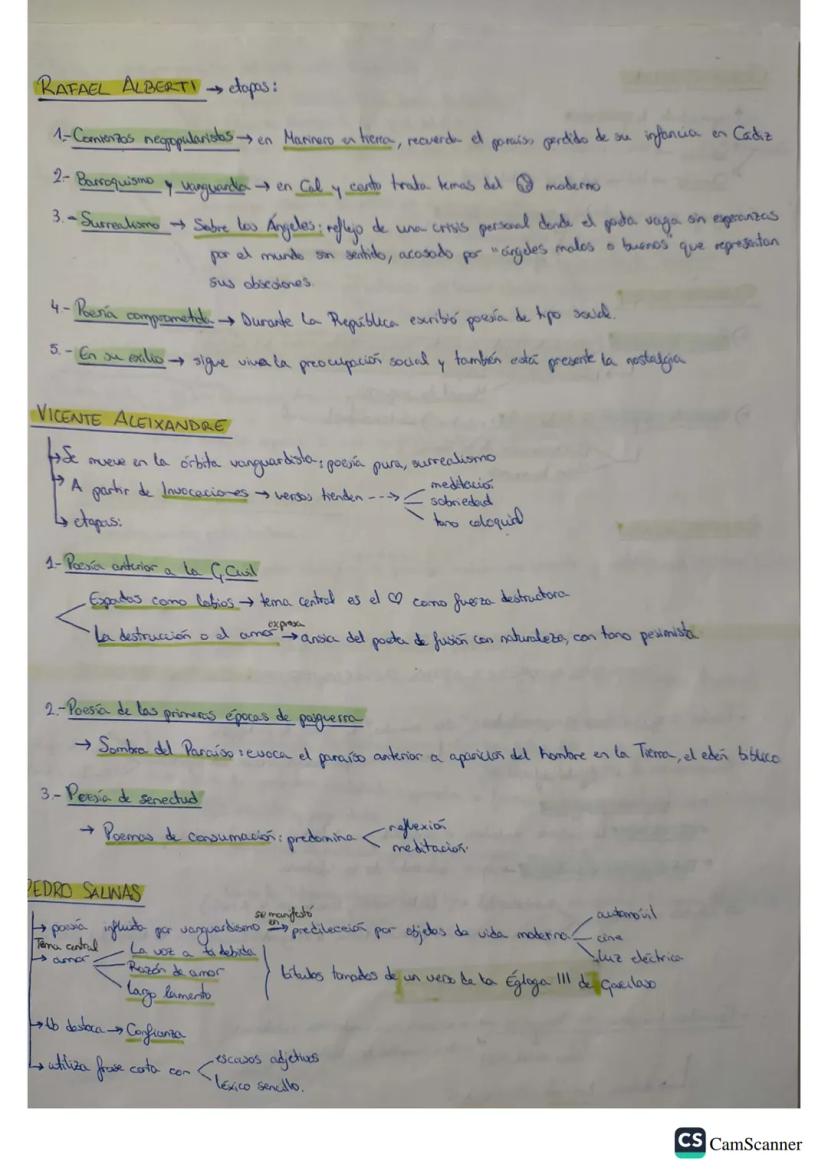 RAFAEL ALBERTI → etapas:
1.- Comienzos neopopularistas → en Marinero en tierra, recuerda el paraíso perdido de su infancia en Cádiz
2.- Barroquismo y vanguardia → en Cal y canto trata temas del moderno
3.- Surrealismo → Sobre los Ángeles: reflejo de una crisis personal donde el poeta vaga sin esperanzas
por el mundo sin sentido, acosado por "ángeles malos o buenos" que representan
sus obsesiones.
4.- Poesía comprometida → Durante la República escribió poesía de tipo social.
5.- En su exilio → sigue viva la preocupación social y también está presente la nostalgia
VICENTE ALEIXANDRE
→ Se mueve en la órbita vanguardista: poesía pura, surrealismo
→ A partir de Invocaciones → versos tienden ---> meditación
sobriedad
tono coloquial
→ etapas:
1- Poesía anterior a la G. Civil
Espadas como labios → tema central es el ♡ como fuerza destructora
La destrucción o el amor expresa → ansia del poeta de fusión con naturaleza, con tono pesimista
2.- Poesía de las primeras épocas de posguerra
→ Sombra del Paraíso: evoca el paraíso anterior a aparición del hombre en la Tierra, el edén bíblico
3.- Poesía de senectud
→ Poemas de consumación: predomina < reflexión
meditación.
PEDRO SALINAS
→ poesía influida por vanguardismo se manifestó en → predilección por objetos de vida moderna < automóvil
cine
luz eléctrica
Tema central
→ amor < La voz a ti debida
Razón de amor
Largo lamento
títulos tomados de un verso de la Égloga III de Garcilaso
→ Ub destaca → Confianza
→ utiliza frase corta con < escasos adjetivos
léxico sencillo.
CS CamScanner